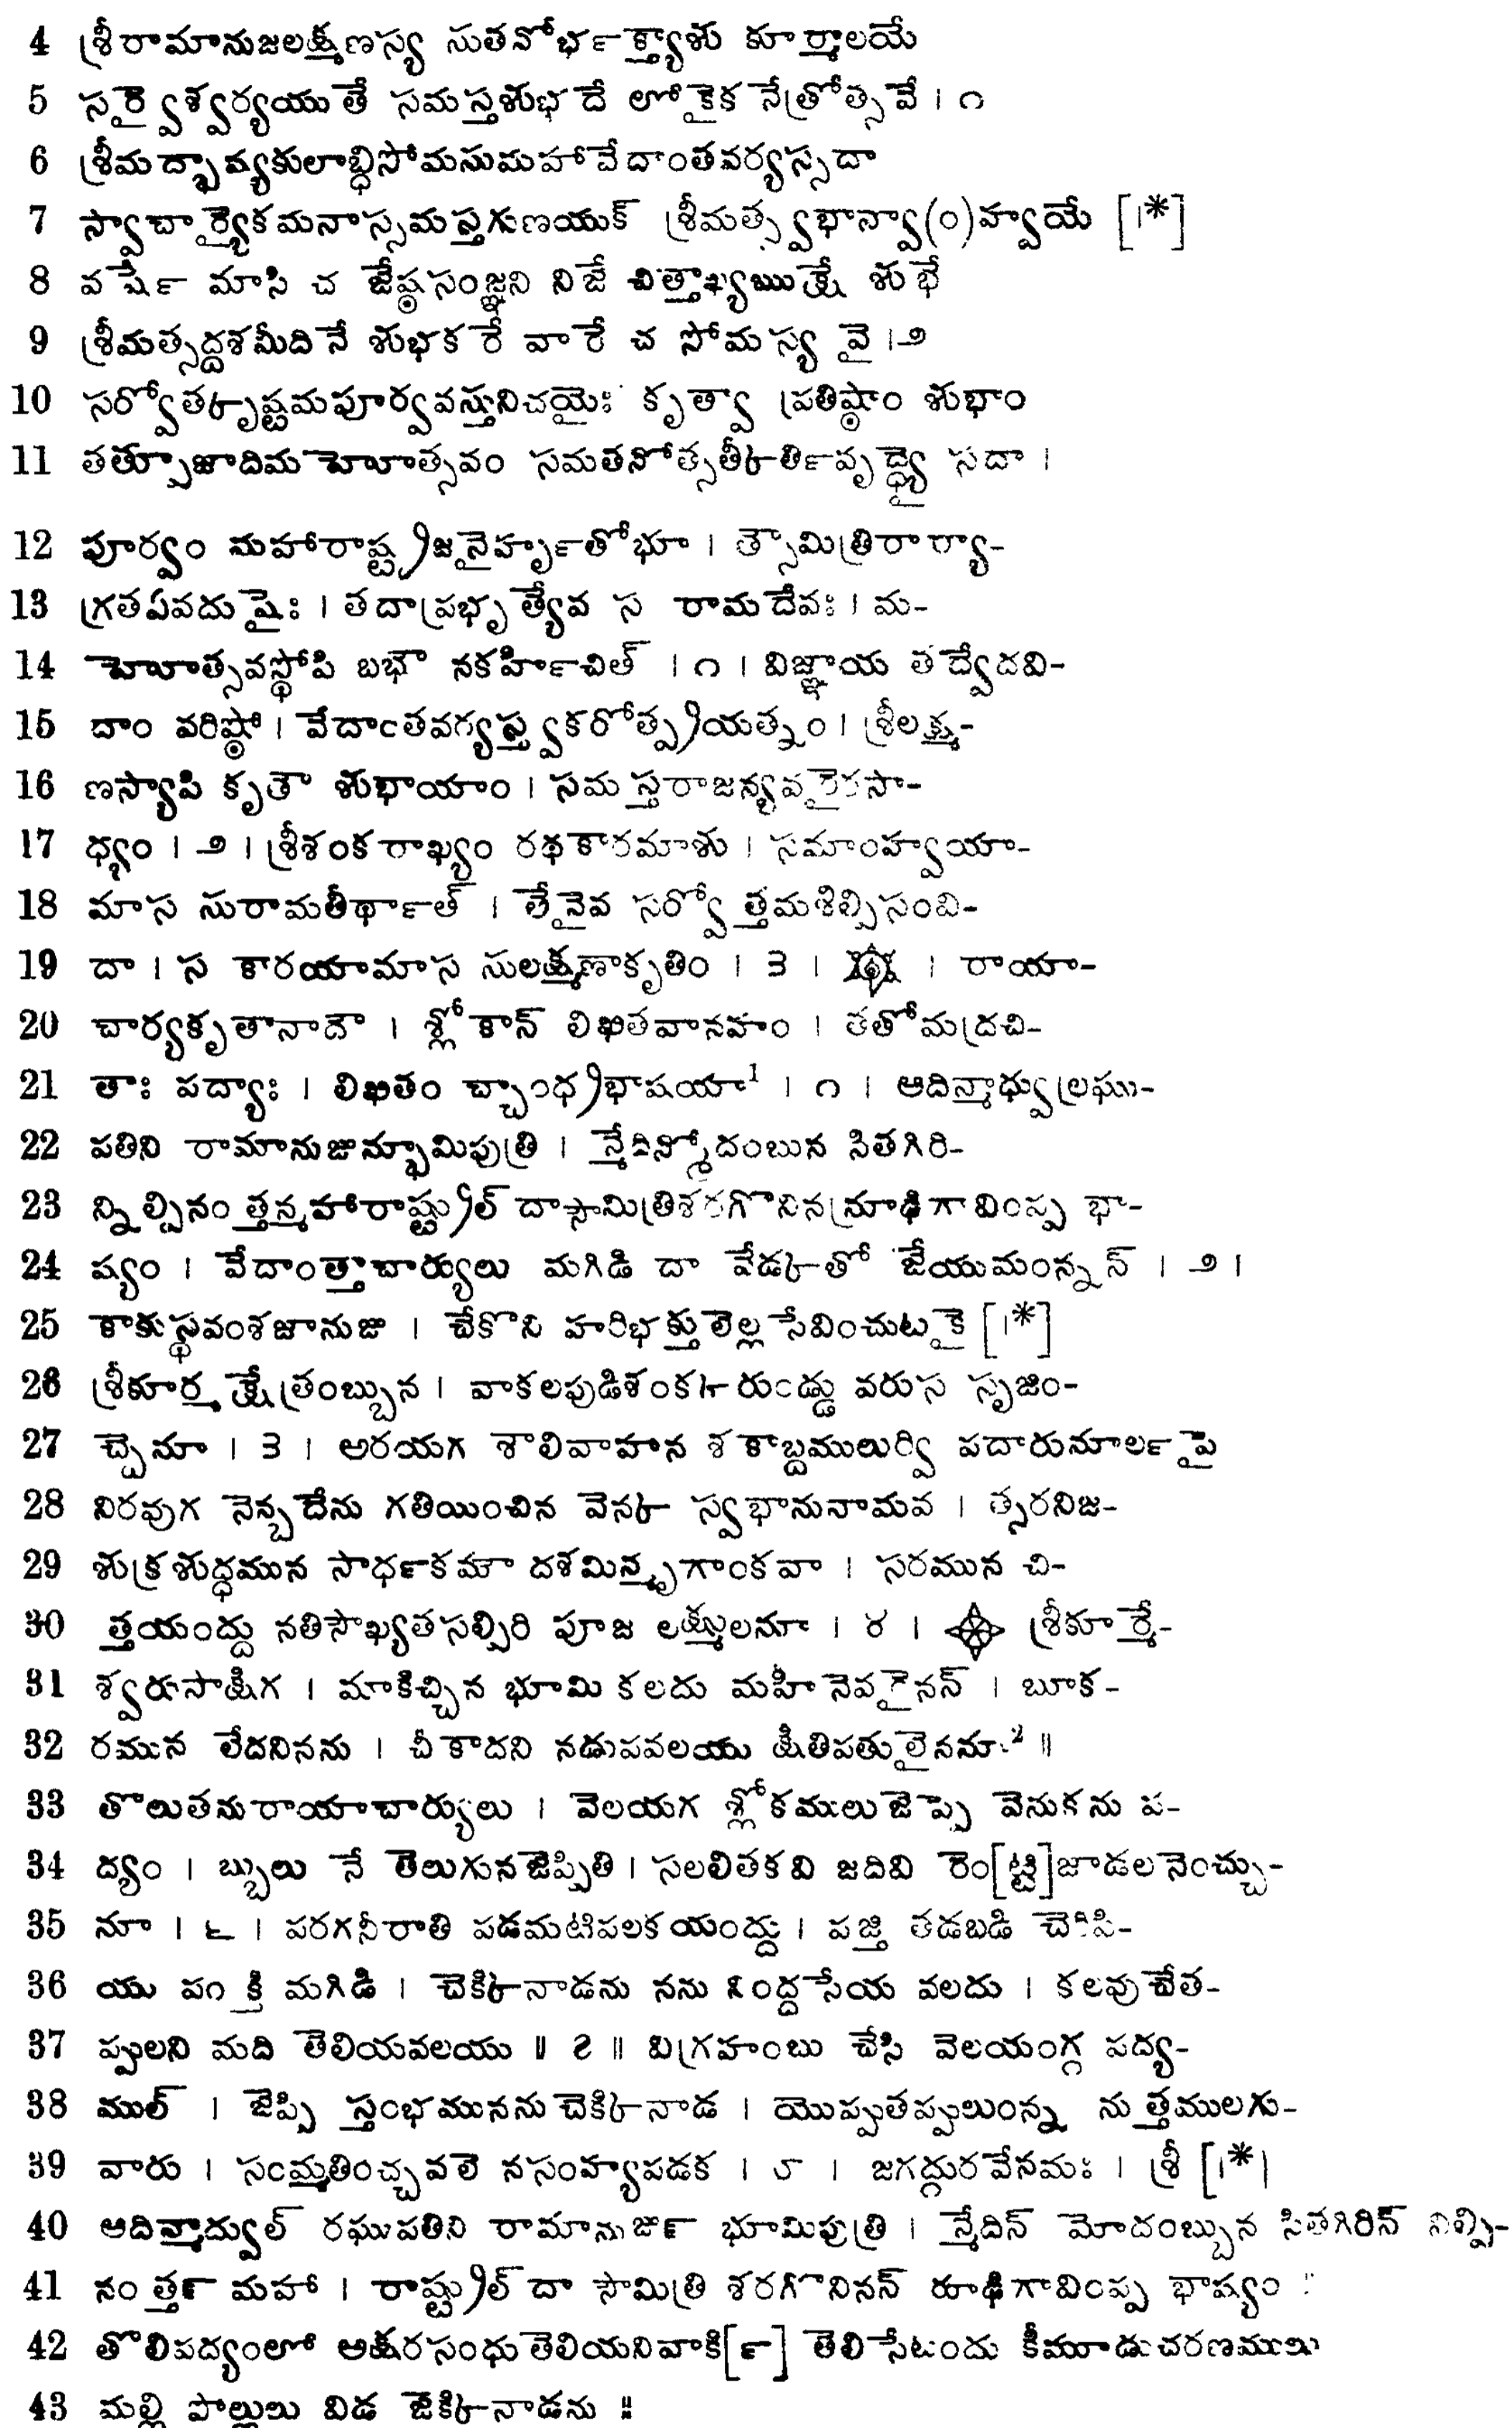 4 శ్రీరామానుజలక్ష్మణస్య సుతనోర్భక్త్యాశు కూర్మాలయే
5 సర్వైశ్వర్యయుతే సమస్తశుభదే లోకైకనేత్రోత్సవే । ౧
6 శ్రీమద్భావ్యకులాబ్ధిసోమసుమహావేదాంతవర్యస్సదా
7 స్వాచార్య్యైకమనాస్సమస్తగుణయుక్ శ్రీమత్స్వభాన్వా(ం)హ్వాయే [।*]
8 వర్షే మాసి చ జేష్ఠసంజ్ఞని నిజే చిత్తాఖ్యఋక్షే శుభే
9 శ్రీమత్సద్దశమీదినే శుభకరే వారే చ సోమస్య వై ।౨
10 సర్వోతకృష్టమపూర్వవస్తునిచయైః కృత్వా ప్రతిష్ఠాం శుభాం
11 తత్పూజాదిమహోత్సవం సమతనోత్సతీర్కతివృద్ధ్యై సదా ।
12 పూర్వం మహారాష్ట్రజనైర్హృతోభూ । త్సౌమిత్రిరాగ్యా-
13 గ్రతఏవదుషైః । తదాప్రభృత్యేవ స రామదేవః । మ-
14 హోత్సవస్థోపి బభౌ నకర్హిచిత్ । ౧ । విజ్ఞాయ తద్వేదవి-
15 దాం వరిష్ఠో । వేదాఁతవగ్యస్త్వకరోత్ప్రియత్నం । శ్రీలక్ష్మ-
16 ణస్యాపి కృతౌ శుభాయాం । సమస్తరాజన్యవరైకసా-
17 ధ్యం । ౨ । శ్రీశంకరాఖ్యం రథకారమాశు । సమాంహ్వయా-
18 మాస సురామతీర్థాత్ । తేనైవ సర్వోత్తమశిల్పిసంవి-
19 దా । స కారయామాస సులక్ష్మణాకృతిం । ౩ । । రాయా-
20 చార్యకృతానాదౌ । శ్లోకాన్ లిఖితవానహం । తతోమద్రచి-
21 తాః పద్యాః । లిఖితం చ్చాంధ్రభాషయా¹ । ౧ । ఆదిన్మాధ్వుల్రఘు-
22 పతిని రామానుజున్భూమిపుత్రి । న్మేదిన్మోదంబున సితగిరి-
23 న్నిల్పినం త్తన్మహారాష్ట్రుల్ దాసౌమిత్రిశరగొనినన్రూఢిగావింప్ప భా-
24 ష్యం । వేదాంత్తాచార్యులు మగిడి దా వేడ్కతో జేయుమంన్నన్ । ౨ ।
25 కాకుస్థవంశజానుజు । చేకొని హరిభక్తులెల్ల సేవించుటకై [।*]
26 శ్రీకూర్మక్షేత్రంబ్బున । వాకలపుడిశంకర్కరుఁడ్డు వరుస సృజిం-
27 చ్చెనూ । ౩ । అరయగ శాలివాహాన శకాబ్దములుర్వి పదారునూర్లపై
28 నిరవుగ నెన్బదేను గతియించిన వెన్క స్వభానునామవ । త్సరనిజ-
29 శుక్రశుద్ధమున సార్ధకమౌ దశమిన్మృగాంకవా । సరమున చి-
30 త్తయంద్దు నతిసౌఖ్యతసల్పిరి పూజ లక్ష్ములనూ । ౪ । శ్రీకూర్మే-
31 శ్వరుసాక్షిగ । మాకిచ్చిన భూమి కలదు మహి నెవరైనన్ । బూక-
32 రమున లేదనినను । చీకాదని నడుపవలయు క్షితిపతులైననూ² ॥
33 తొలుతను రాయాచార్యులు । వెలయగ శ్లోకములు జెప్పె వెనుకను ప-
34 ద్యం । బ్బులు నే తెలుగున జెప్పితి । సలలితకవి జదివి రెం[ట్టి]జాడలనెంచ్చు-
35 నూ । ౬ । పరగనీరాతి పడమటిపలకయంద్దు । పఙ్తి తడబడి చెరిపి-
36 యు పంక్తి మగిడి । చెక్కినాడను నను నింద్దసేయ వలదు । కలవుచేత-
37 ప్పులని మది తెలియవలయు ॥ ౭ ॥ విగ్రహంబు చేసి వెలయంగ్గ పద్య-
38 ముల్ । జెప్పి స్తంభమునను చెక్కినాడ । యొప్పుతప్పులుంన్న నుత్తములగు-
39 వారు । సంమ్మతించ్చవలె నసంహ్యపడక । ౮ । జగద్గురవేనమః । శ్రీ [।*]
40 ఆదిన్మాద్వుల్ రఘుపతిని రామానుజున్ భూమిపుత్రి । న్మేదిన్ మోదంబ్బున సితగిరిన్ నిల్పి-
41 నం త్తన్ మహా । రాష్ట్రుల్ దా సౌమిత్రి శరగొనినన్ రూఢిగావింప్ప భాష్యం ।
42 తొలిపద్యంలో అక్షరసంధు తెలియనివాకి[ర్] తెలిసేటందు కీమూడుచరణములు
43 మల్లి పొల్లులు విడ జెక్కినాడను ॥